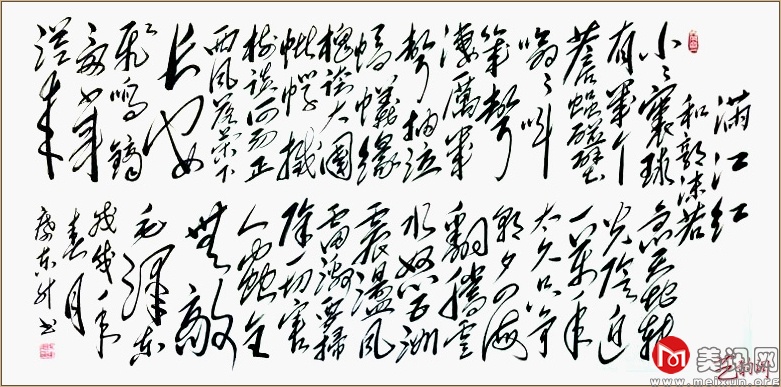 满江红
和郭沫若
小々寰球
有几个
苍蝇碰壁
嗡々叫
几声
凄厉几
声抽泣
蚂蚁缘
槐夸大国
蚍蜉撼
树谈何易正
西风落叶下
长安
飞鸣镝
多少事
从来
急天地转
光阴迫
一万年
太久只争
朝夕四海
翻腾云
水怒五洲
震荡风
雷激要扫
除一切害
人虫全
无敌
毛泽东
戊戌年
春月
东升书
美讯网
www.meixun.org